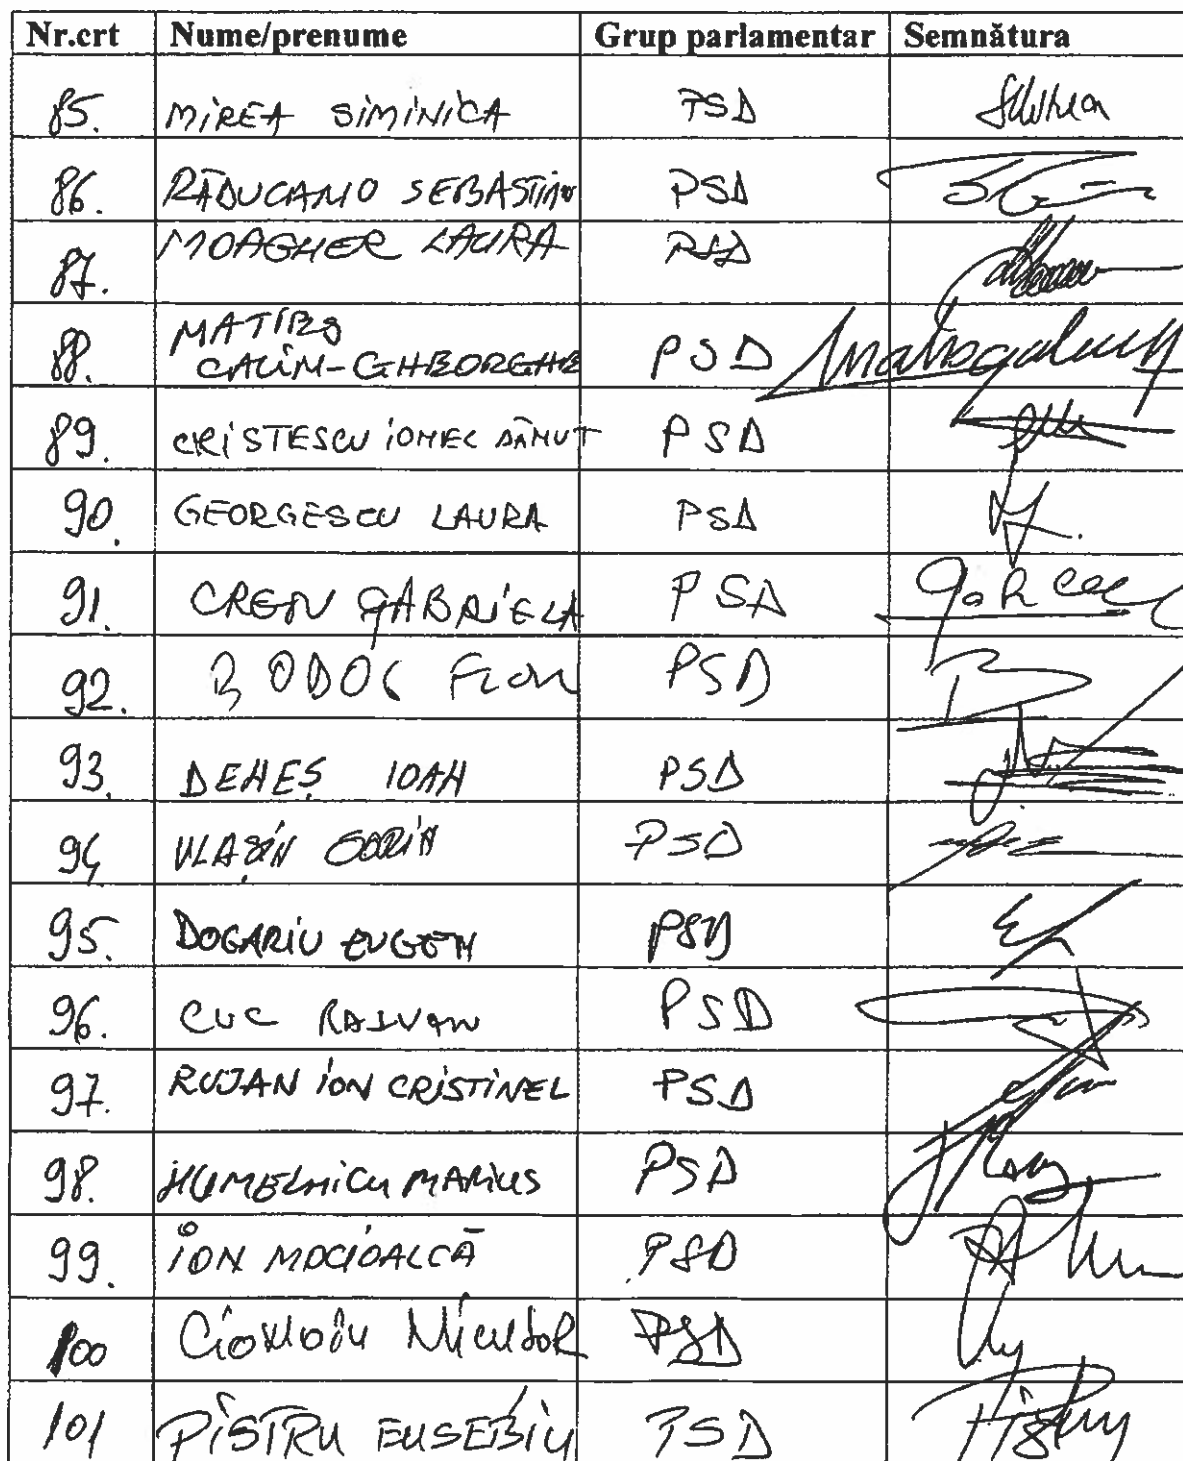 Nr.crt Nume/prenume Grup parlamentar Semnătura
85. MIREA SIMINICA PSD
86. RĂDUCANU SEBASTIAN PSD
87. MOAGHER LAURA PSD
88. MATIEȘ
CALIN-GHEORGHE PSD
89. CRISTESCU IONEL DĂNUT PSD
90. GEORGESCU LAURA PSD
91. CREȚU GABRIELA PSD
92. BODOG FLORIAN PSD
93. DENEȘ IOAN PSD
94 VLAȘIN SORIN PSD
95. DOGARIU EUGEN PSD
96. CUC RAZVAN PSD
97. RUJAN ION CRISTINEL PSD
98. HUMELNICU MARIUS PSD
99. ION MOCIOALCĂ PSD
100 PSD
101 PISTRU EUSEBIU PSD